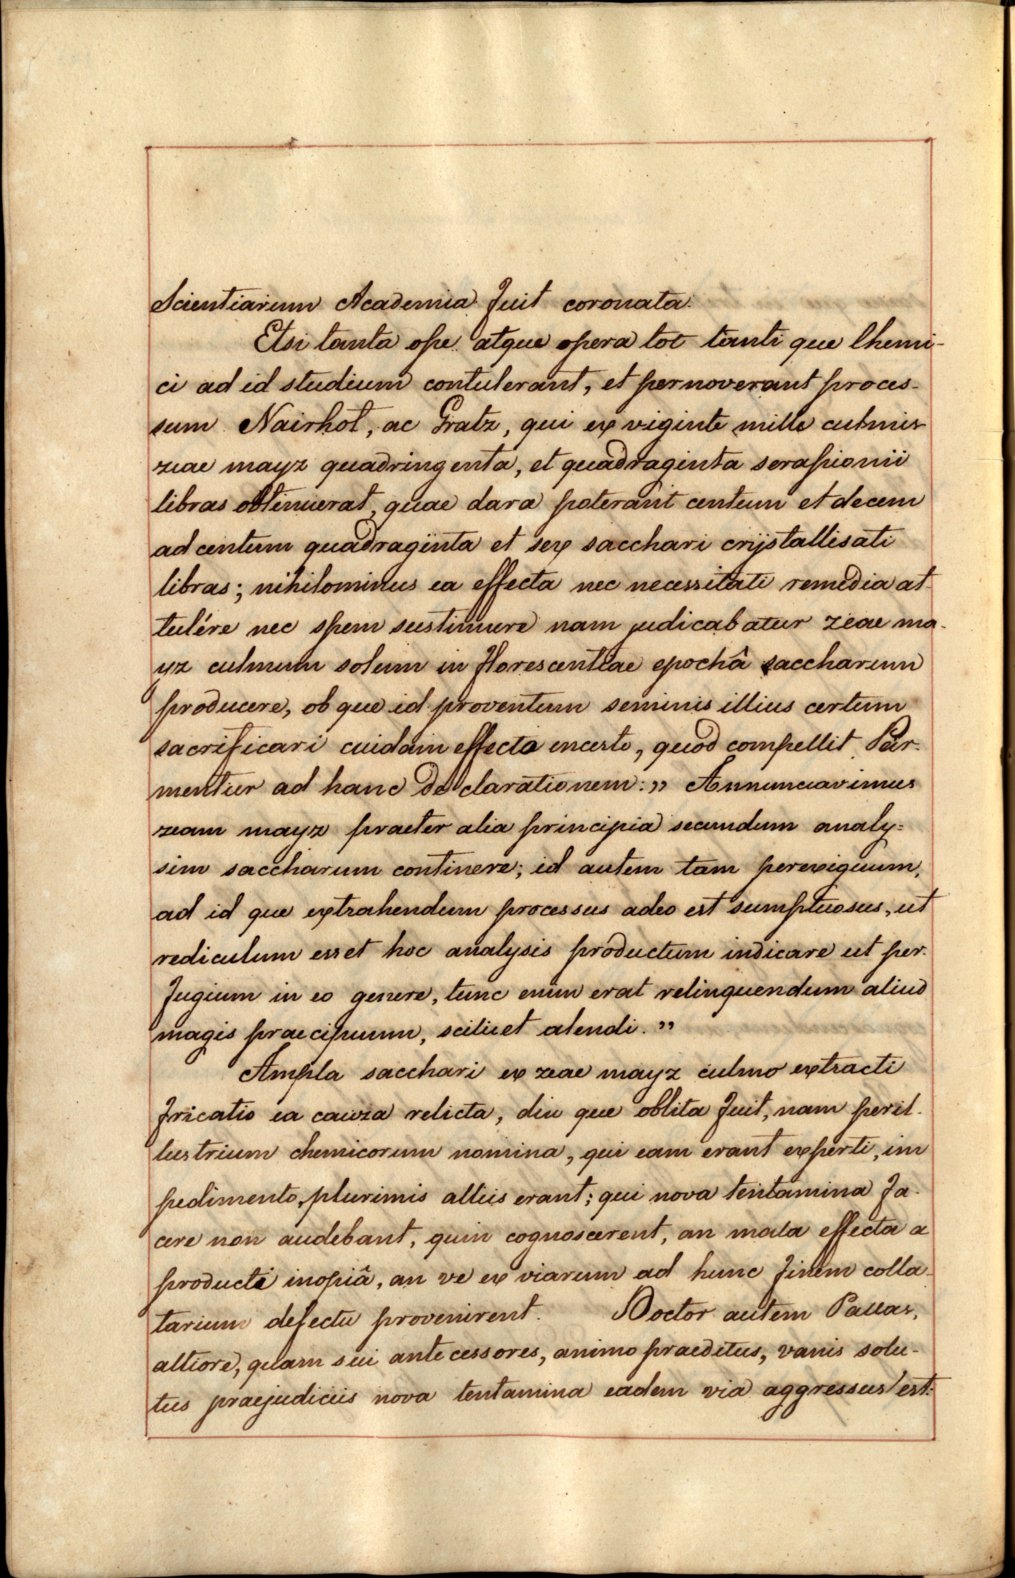 Scientiarum Academia fuit coronata.
Etsi tanta ope atque opera tot tanti que Chemi-
ci ad id studium contulerant, et pernoverant proces-
sum Nairhot, ac Gratz, qui ex viginte mille culmis
zeae mayz quadringenta, et quadraginta serapionii
libras obtinuerat, quae dara poterant centum et decem
ad centum quadraginta et sex sacchari crijstallisati
libras; nihilominus ea effecta nec necessitati remedia at-
tulére nec spem sustinuere nam judicabatur zeae ma-
yz culmum solum in florescentiae epochâ saccharum
producere, ob que id proventum seminis illius certum
sacrificari cuidam effecto incerto, quod compellit Par-
mentier ad hanc declarationem: " Annunciavimus
zeam mayz praeter alia principia secundum analy=
sim saccharum continere; id autem tam perexiguum,
ad id que extrahendum processus adeo est sumptuosus, ut
rediculum esset hoc analysis productum indicare ut per-
fugium in eo genere, tunc enim erat relinquendum aliud
magis praecipuum, scilicet alendi. "
Ampla sacchari ex zeae mayz culmo extracti
fricatio ea causa relicta, diu que oblita fuit, nam peril-
lustrium chemicorum nomina, qui eam erant experti, im
pedimento plurimis altiis erant; qui nova tentamina fa-
cere non audebant, quin cognoscerent, an mala effecta a
producti inopiâ, an ve ex viarum ad hunc finem colla-
tarium defectu provenirent. Doctor autem Pallas,
altiore, quam sui antecessores, animo praeditus, vanis solu-
tus praejudiciis nova tentamina eadem via aggressus est.